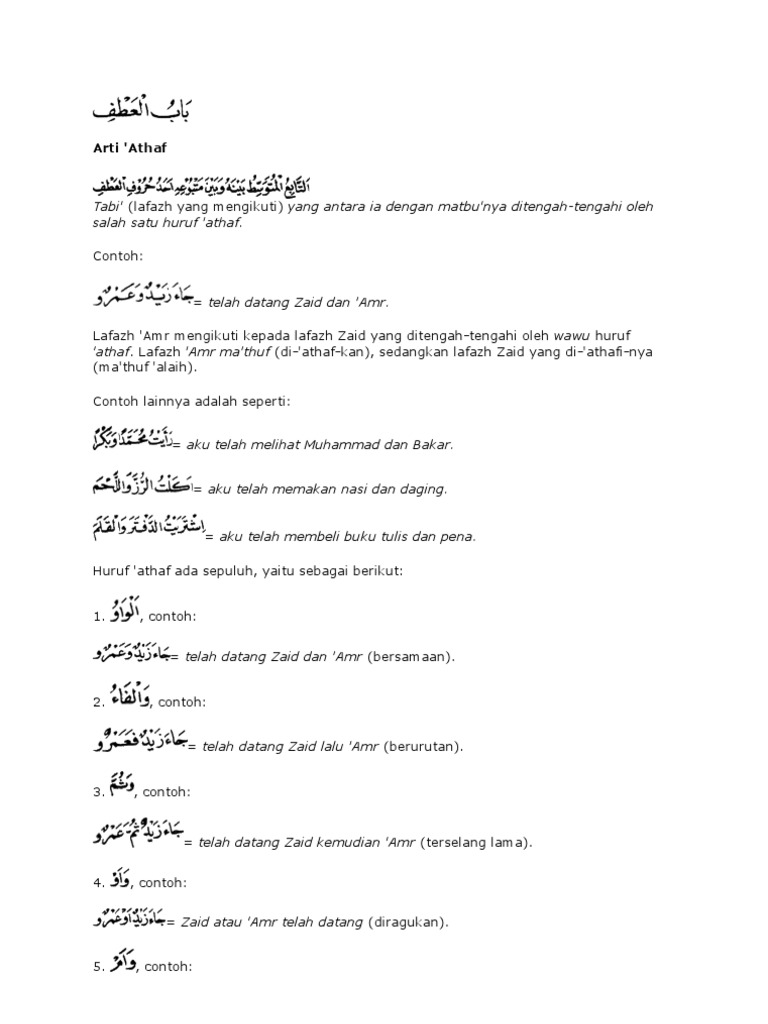 بَابُ الْعَطْفِ
Arti 'Athaf
اَلتَّابِعُ الْمُتَوَسِّطُ بَيْنَهُ وَبَيْنَ مَتْبُوْعِهِ اَحَدُ حُرُوْفِ الْعَطْفِ
Tabi' (lafazh yang mengikuti) yang antara ia dengan matbu'nya ditengah-tengahi oleh
salah satu huruf 'athaf.
Contoh:
جَاءَ زَيْدٌ وَعَمْرٌو = telah datang Zaid dan 'Amr.
Lafazh 'Amr mengikuti kepada lafazh Zaid yang ditengah-tengahi oleh wawu huruf
'athaf. Lafazh 'Amr ma'thuf (di-'athaf-kan), sedangkan lafazh Zaid yang di-'athafi-nya
(ma'thuf 'alaih).
Contoh lainnya adalah seperti:
رَأَيْتُ مُحَمَّدًا وَبَكْرًا = aku telah melihat Muhammad dan Bakar.
اَكَلْتُ الرُّزَّ وَاللَّحْمَ = aku telah memakan nasi dan daging.
اِشْتَرَيْتُ الدَّفْتَرَ وَالْقَلَمَ = aku telah membeli buku tulis dan pena.
Huruf 'athaf ada sepuluh, yaitu sebagai berikut:
1. اَلْوَاوُ, contoh:
جَاءَ زَيْدٌ وَعَمْرٌو = telah datang Zaid dan 'Amr (bersamaan).
2. وَالْفَاءُ, contoh:
جَاءَ زَيْدٌ فَعَمْرٌو = telah datang Zaid lalu 'Amr (berurutan).
3. وَثُمَّ, contoh:
جَاءَ زَيْدٌ ثُمَّ عَمْرٌو = telah datang Zaid kemudian 'Amr (terselang lama).
4. وَاَوْ, contoh:
جَاءَ زَيْدٌ اَوْ عَمْرٌو = Zaid atau 'Amr telah datang (diragukan).
5. وَاَمْ, contoh: